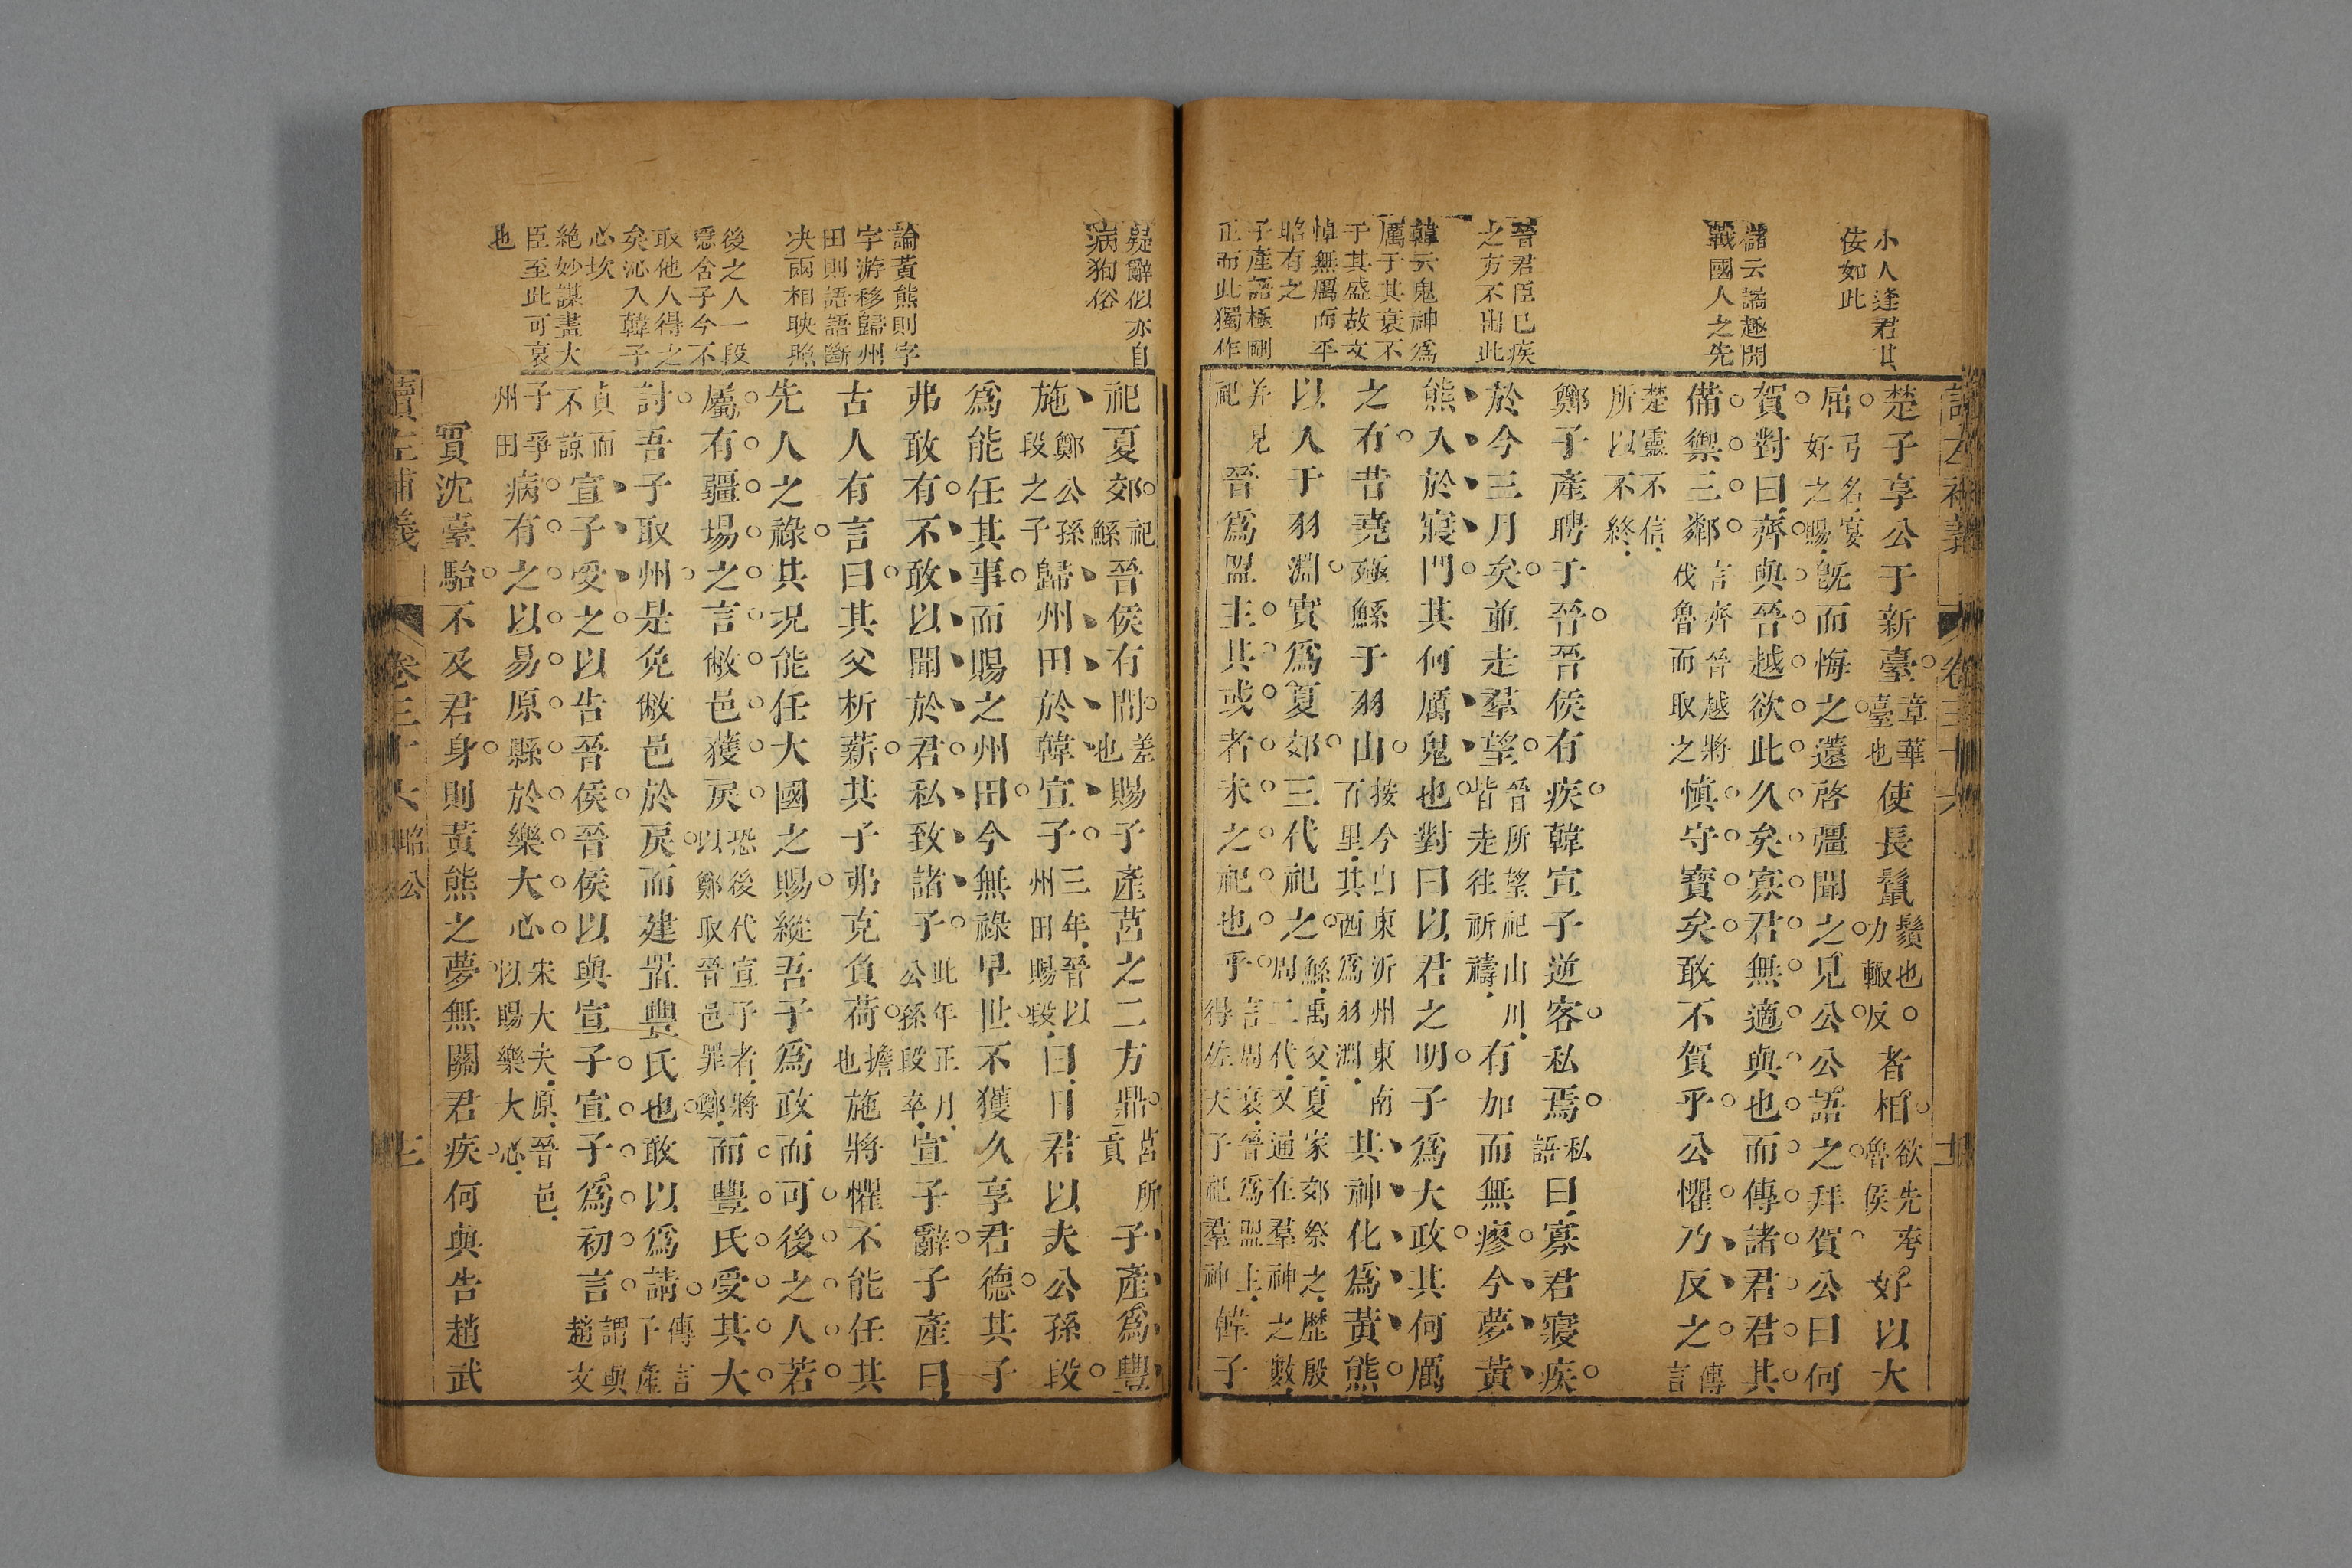 小人逢君其
佞如此
儲云譎趣開
戰國人之先
晉君臣已疾
之方不出此
韓云鬼神爲
厲于其衰不
于其盛故文
悼無厲而平
昭有之
子產語極剛
正而此獨作
楚子享公于新臺章華臺也使長鬣鬚也力輙反者相欲先夸魯侯好以大
屈弓名宴好之賜既而悔之薳啓彊聞之見公公語之拜賀公曰何
賀對曰齊與晉越欲此久矣寡君無適與也而傳諸君君其
備禦三鄰言齊晉越將伐魯而取之慎守寶矣敢不賀乎公懼乃反之傳言
楚靈不信所以不終
鄭子產聘于晉晉侯有疾韓宣子逆客私焉私語曰寡君寢疾
於今三月矣並走羣望晉所望祀山川皆走往祈禱有加而無瘳今夢黃
熊入於寢門其何厲鬼也對曰以君之明子爲大政其何厲
之有昔堯殛鯀于羽山按今山東沂州東南百里其西爲羽淵其神化爲黃熊
以入于羽淵實爲夏郊三代祀之鯀禹父夏家郊祭之歷殷周二代又通在羣神之數
并見祀晉爲盟主其或者未之祀也乎言周衰晉爲盟主得佐天子祀羣神韓子
疑辭似亦自
病狥俗
論黃熊則字
字游移歸州
田則語語斷
决兩相映照
後之人一段
意含子今不
取他人得之
矣沁入韓子
心坎
絕妙謀畫大
臣至此可哀
也
祀夏郊祀鯀晉侯有間差也賜子產莒之二方鼎莒所貢子產爲豐
施鄭公孫段之子歸州田於韓宣子三年晉以州田賜段曰日君以夫公孫段
爲能任其事而賜之州田今無祿早世不獲久享君德其子
弗敢有不敢以聞於君私致諸子此年正月公孫段卒宣子辭子產曰
古人有言曰其父析薪其子弗克負荷擔也施將懼不能任其
先人之祿其况能任大國之賜縱吾子爲政而可後之人若
屬有疆場之言敝邑獲戾恐後代宣子者將以鄭取晉邑罪鄭而豐氏受其大
討吾子取州是免敝邑於戾而建置豐氏也敢以爲請傳言子產
貞而不諒宣子受之以告晉侯晉侯以與宣子宣子爲初言謂與趙文
子爭州田病有之以易原縣於樂大心宋大夫原晉邑以賜樂大心
實沈臺駘不及君身則黃熊之夢無關君疾何與告趙武
讀左補義
卷三十六 昭公